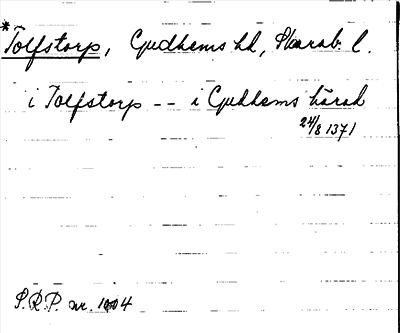 *Tolfstorp, Gudhems hd, Skarab. l.
i Tolfstorp -- i Gudhems härad
24/8 1371
S.R.P. nr. 1004